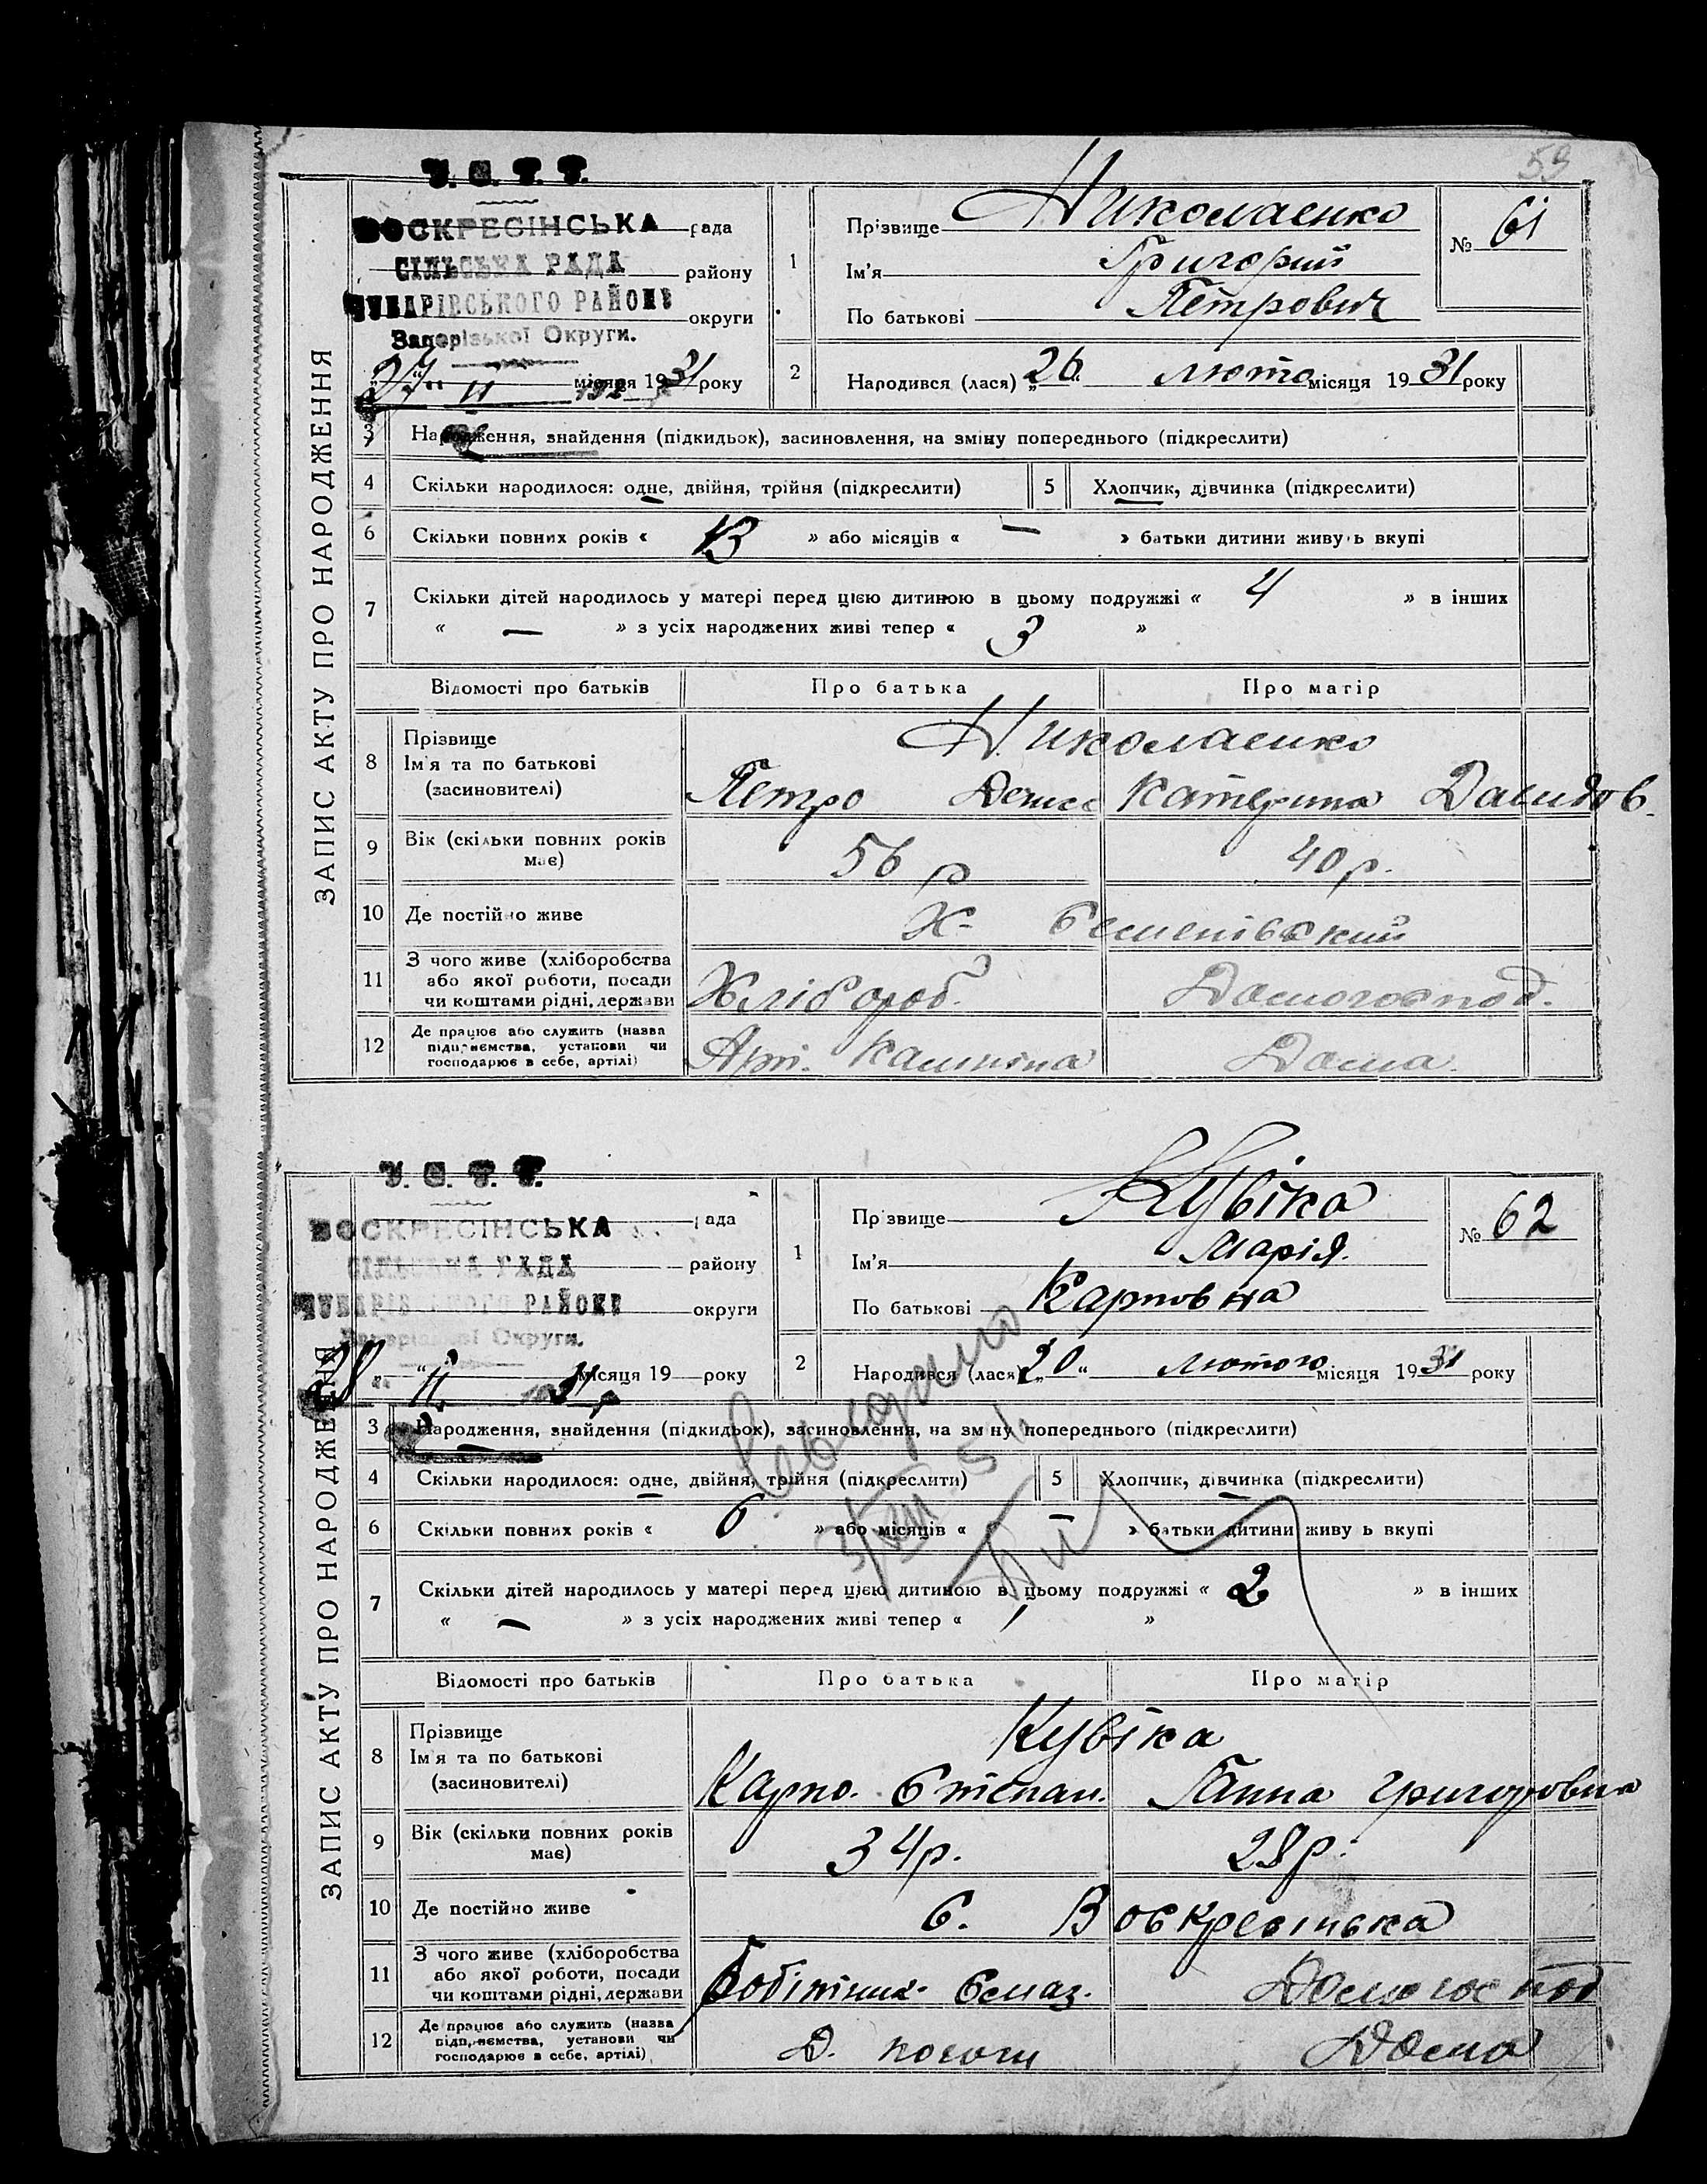 59
ЗАПИС АКТУ ПРО НАРОДЖЕННЯ
У. С. Р. Р.
ВОСКРЕСІНСЬКА рада
СІЛЬСЬКА РАДА району
ЧУБАРІВСЬКОГО РАЙОНУ округи
Запорізької Округи.
27 II місяця 1931 року
1 Прізвище Николаенко
Ім'я Григорий
По батькові Петрович
№ 61
2 Народився (лася) „26" люто місяця 1931 року
3 Народження, знайдення (підкидьок), засиновлення, на зміну попереднього (підкреслити)
4 Скільки народилося: одне, двійня, трійня (підкреслити) 5 Хлопчик, дівчинка (підкреслити)
6 Скільки повних років « 13 » або місяців « — » батьки дитини живуть вкупі
7 Скільки дітей народилось у матері перед цією дитиною в цьому подружжі « 4 » в інших
« — » з усіх народжених живі тепер « 3 »
Відомості про батьків Про батька Про матір
8 Прізвище Николаенко
Ім'я та по батькові
(засиновителі) Петро Катерина Давидов.
9 Вік (скільки повних років має) 56 р 40 р.
10 Де постійно живе Х.
11 З чого живе (хліборобства
або якої роботи, посади
чи коштами рідні, держави Хлібороб. Домогоспод.
12 Де працює або служить (назва
підприємства, установи чи
господарює в себе, артілі) Арт. Калініна Дома.
ЗАПИС АКТУ ПРО НАРОДЖЕННЯ
У. С. Р. Р.
ВОСКРЕСІНСЬКА рада
СІЛЬСЬКА РАДА району
ЧУБАРІВСЬКОГО РАЙОНУ округи
Запорізької Округи.
28 „ II місяця 19 31 року
1 Прізвище Кувіка
Ім'я Марія.
По батькові Карповна
№ 62
2 Народився (лася) „20" лютого місяця 1931 року
3 Народження, знайдення (підкидьок), засиновлення, на зміну попереднього (підкреслити)
4 Скільки народилося: одне, двійня, трійня (підкреслити) 5 Хлопчик, дівчинка (підкреслити)
6 Скільки повних років « 6 » або місяців « — » батьки дитини живуть вкупі
7 Скільки дітей народилось у матері перед цією дитиною в цьому подружжі « 2 » в інших
« — » з усіх народжених живі тепер « 1 »
Відомості про батьків Про батька Про матір
8 Прізвище Кувіка
Ім'я та по батькові
(засиновителі) Карпо. Степан. Ганна Григоровна
9 Вік (скільки повних років має) 34 р. 28 р.
10 Де постійно живе С. Воскресінька
11 З чого живе (хліборобства
або якої роботи, посади
чи коштами рідні, держави Домогоспод
12 Де працює або служить (назва
підприємства, установи чи
господарює в себе, артілі) Д. Пологи Дома